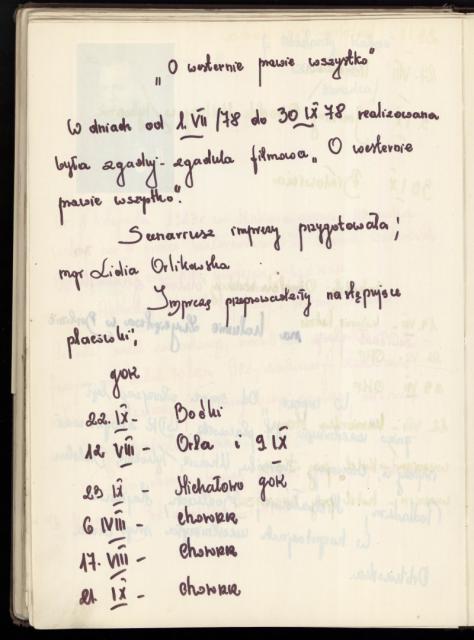 „O westernie prawie wszystko"
W dniach od 1.VII/78 do 30 IX 78 realizowana
była zgaduj-zgadula filmowa „O westernie
prawie wszystko".
Scenariusz imprezy przygotowała;
mgr Lidia Orlikowska
Imprezę przeprowadziły następujące
placówki;
GOK
22. IX - Boćki
12. VIII - Orla i 9 IX
23. IX - Michałowo GOK
6. VIII - Choroszcz
17. VIII - Choroszcz
21. IX - Choroszcz